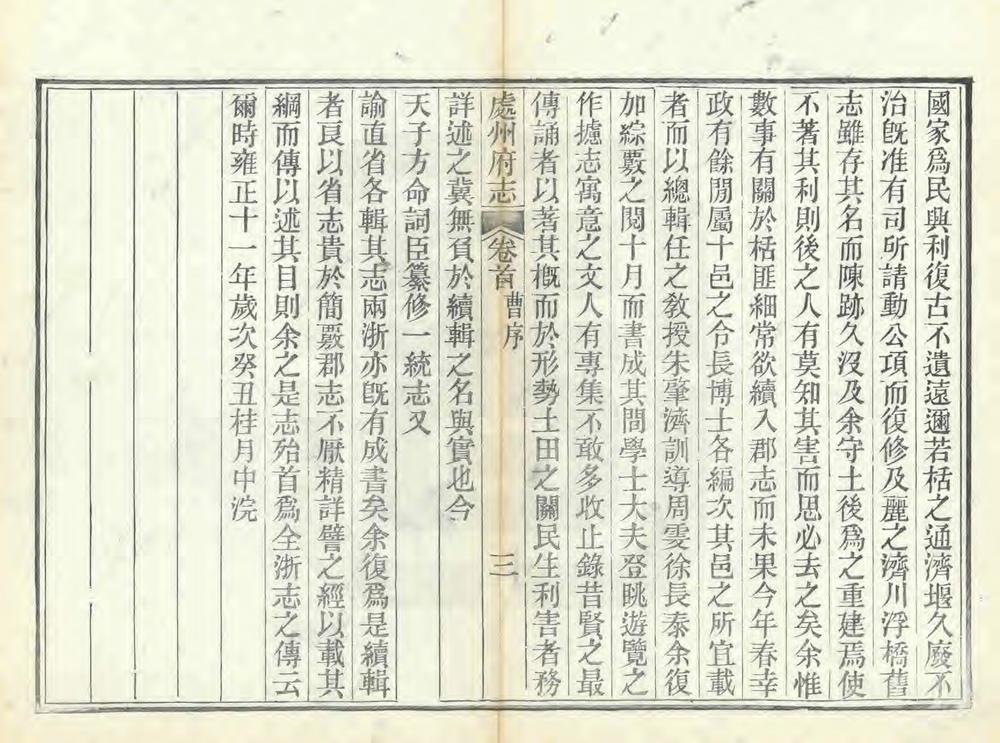 國家爲民興利復古不遺遠邇若栝之通濟堰久廢不
治旣准有司所請動公項而復修及麗之濟川浮橋舊
志雖存其名而陳跡久沒及余守土後爲之重建焉使
不著其利則後之人有莫知其害而思必去之矣余惟
數事有關於栝匪細常欲續入郡志而未果今年春幸
政有餘閒屬十邑之令長博士各編次其邑之所宜載
者而以總輯任之敎授朱肇濟訓導周雯徐長泰余復
加綜覈之閱十月而書成其間學士大夫登眺遊覽之
作攄志寓意之文人有專集不敢多收止錄昔賢之最
傳誦者以著其槪而於形勢土田之關民生利害者務
處州府志 卷首 曹序 三
詳述之冀無負於續輯之名與實也今
天子方命詞臣纂修一統志又
諭直省各輯其志兩浙亦旣有成書矣余復爲是續輯
者良以省志貴於簡覈郡志不厭精詳譬之經以載其
綱而傳以述其目則余之是志殆首爲全浙志之傳云
爾時雍正十一年歲次癸丑桂月中浣